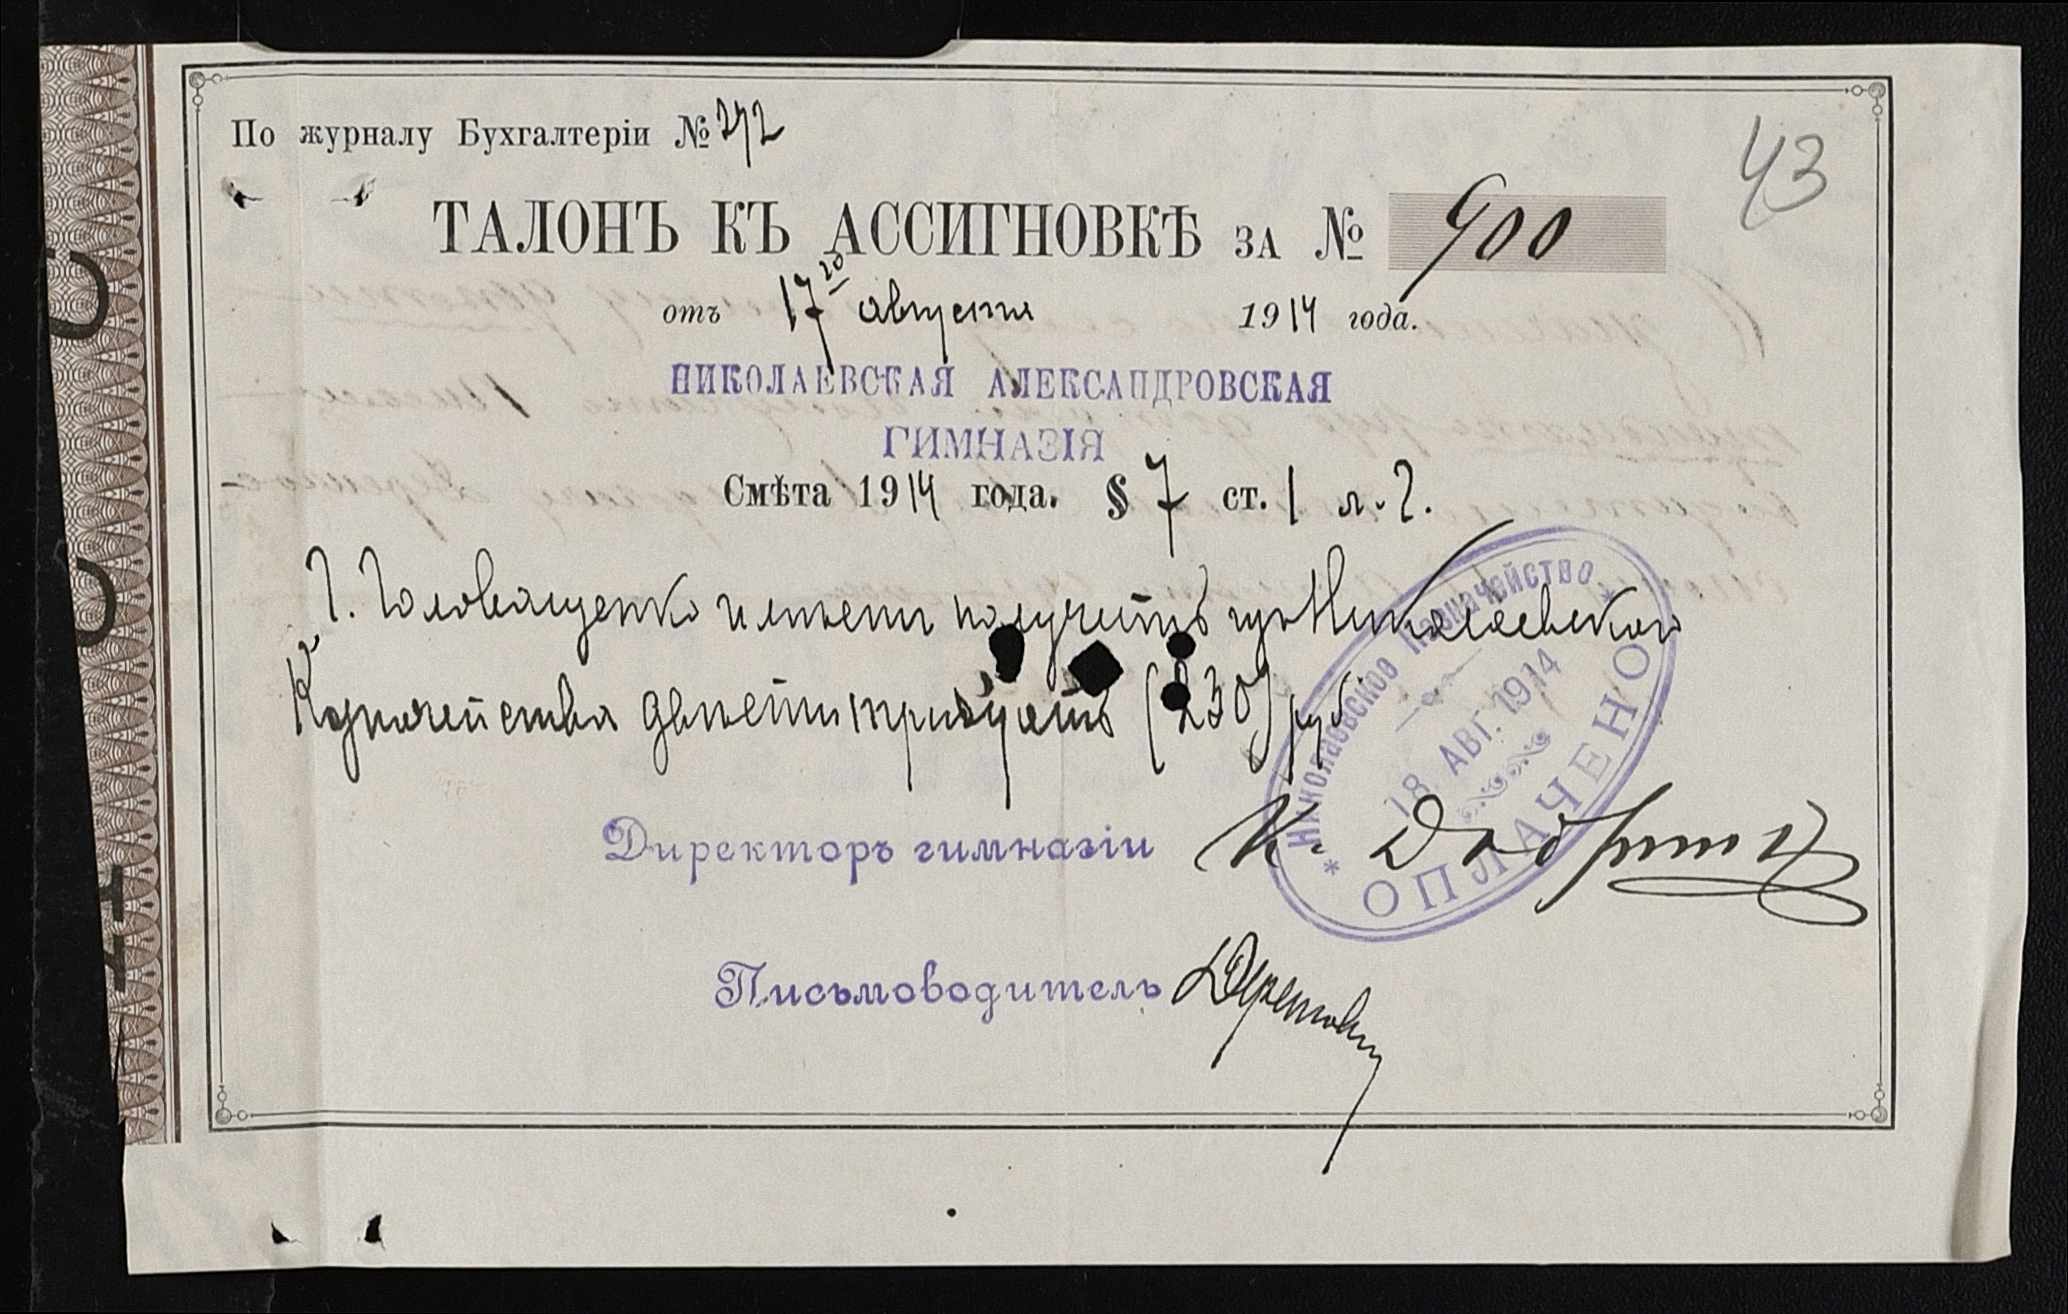 По журналу Бухгалтеріи № 272
43
ТАЛОНЪ КЪ АССИГНОВКѢ ЗА № 900
отъ 17го августа 1914 года.
НИКОЛАЕВСКАЯ АЛЕКСАНДРОВСКАЯ
ГИМНАЗІЯ
Смѣта 1914 года. § 7 ст. 1 л. 2.
Г. Головащенко имѣетъ получить изъ Николаевскаго
Казначейства двѣсти тридцать (230) руб
Николаевское Казначейство
18 АВГ. 1914
ОПЛАЧЕНО
Директоръ гимназіи
Письмоводитель